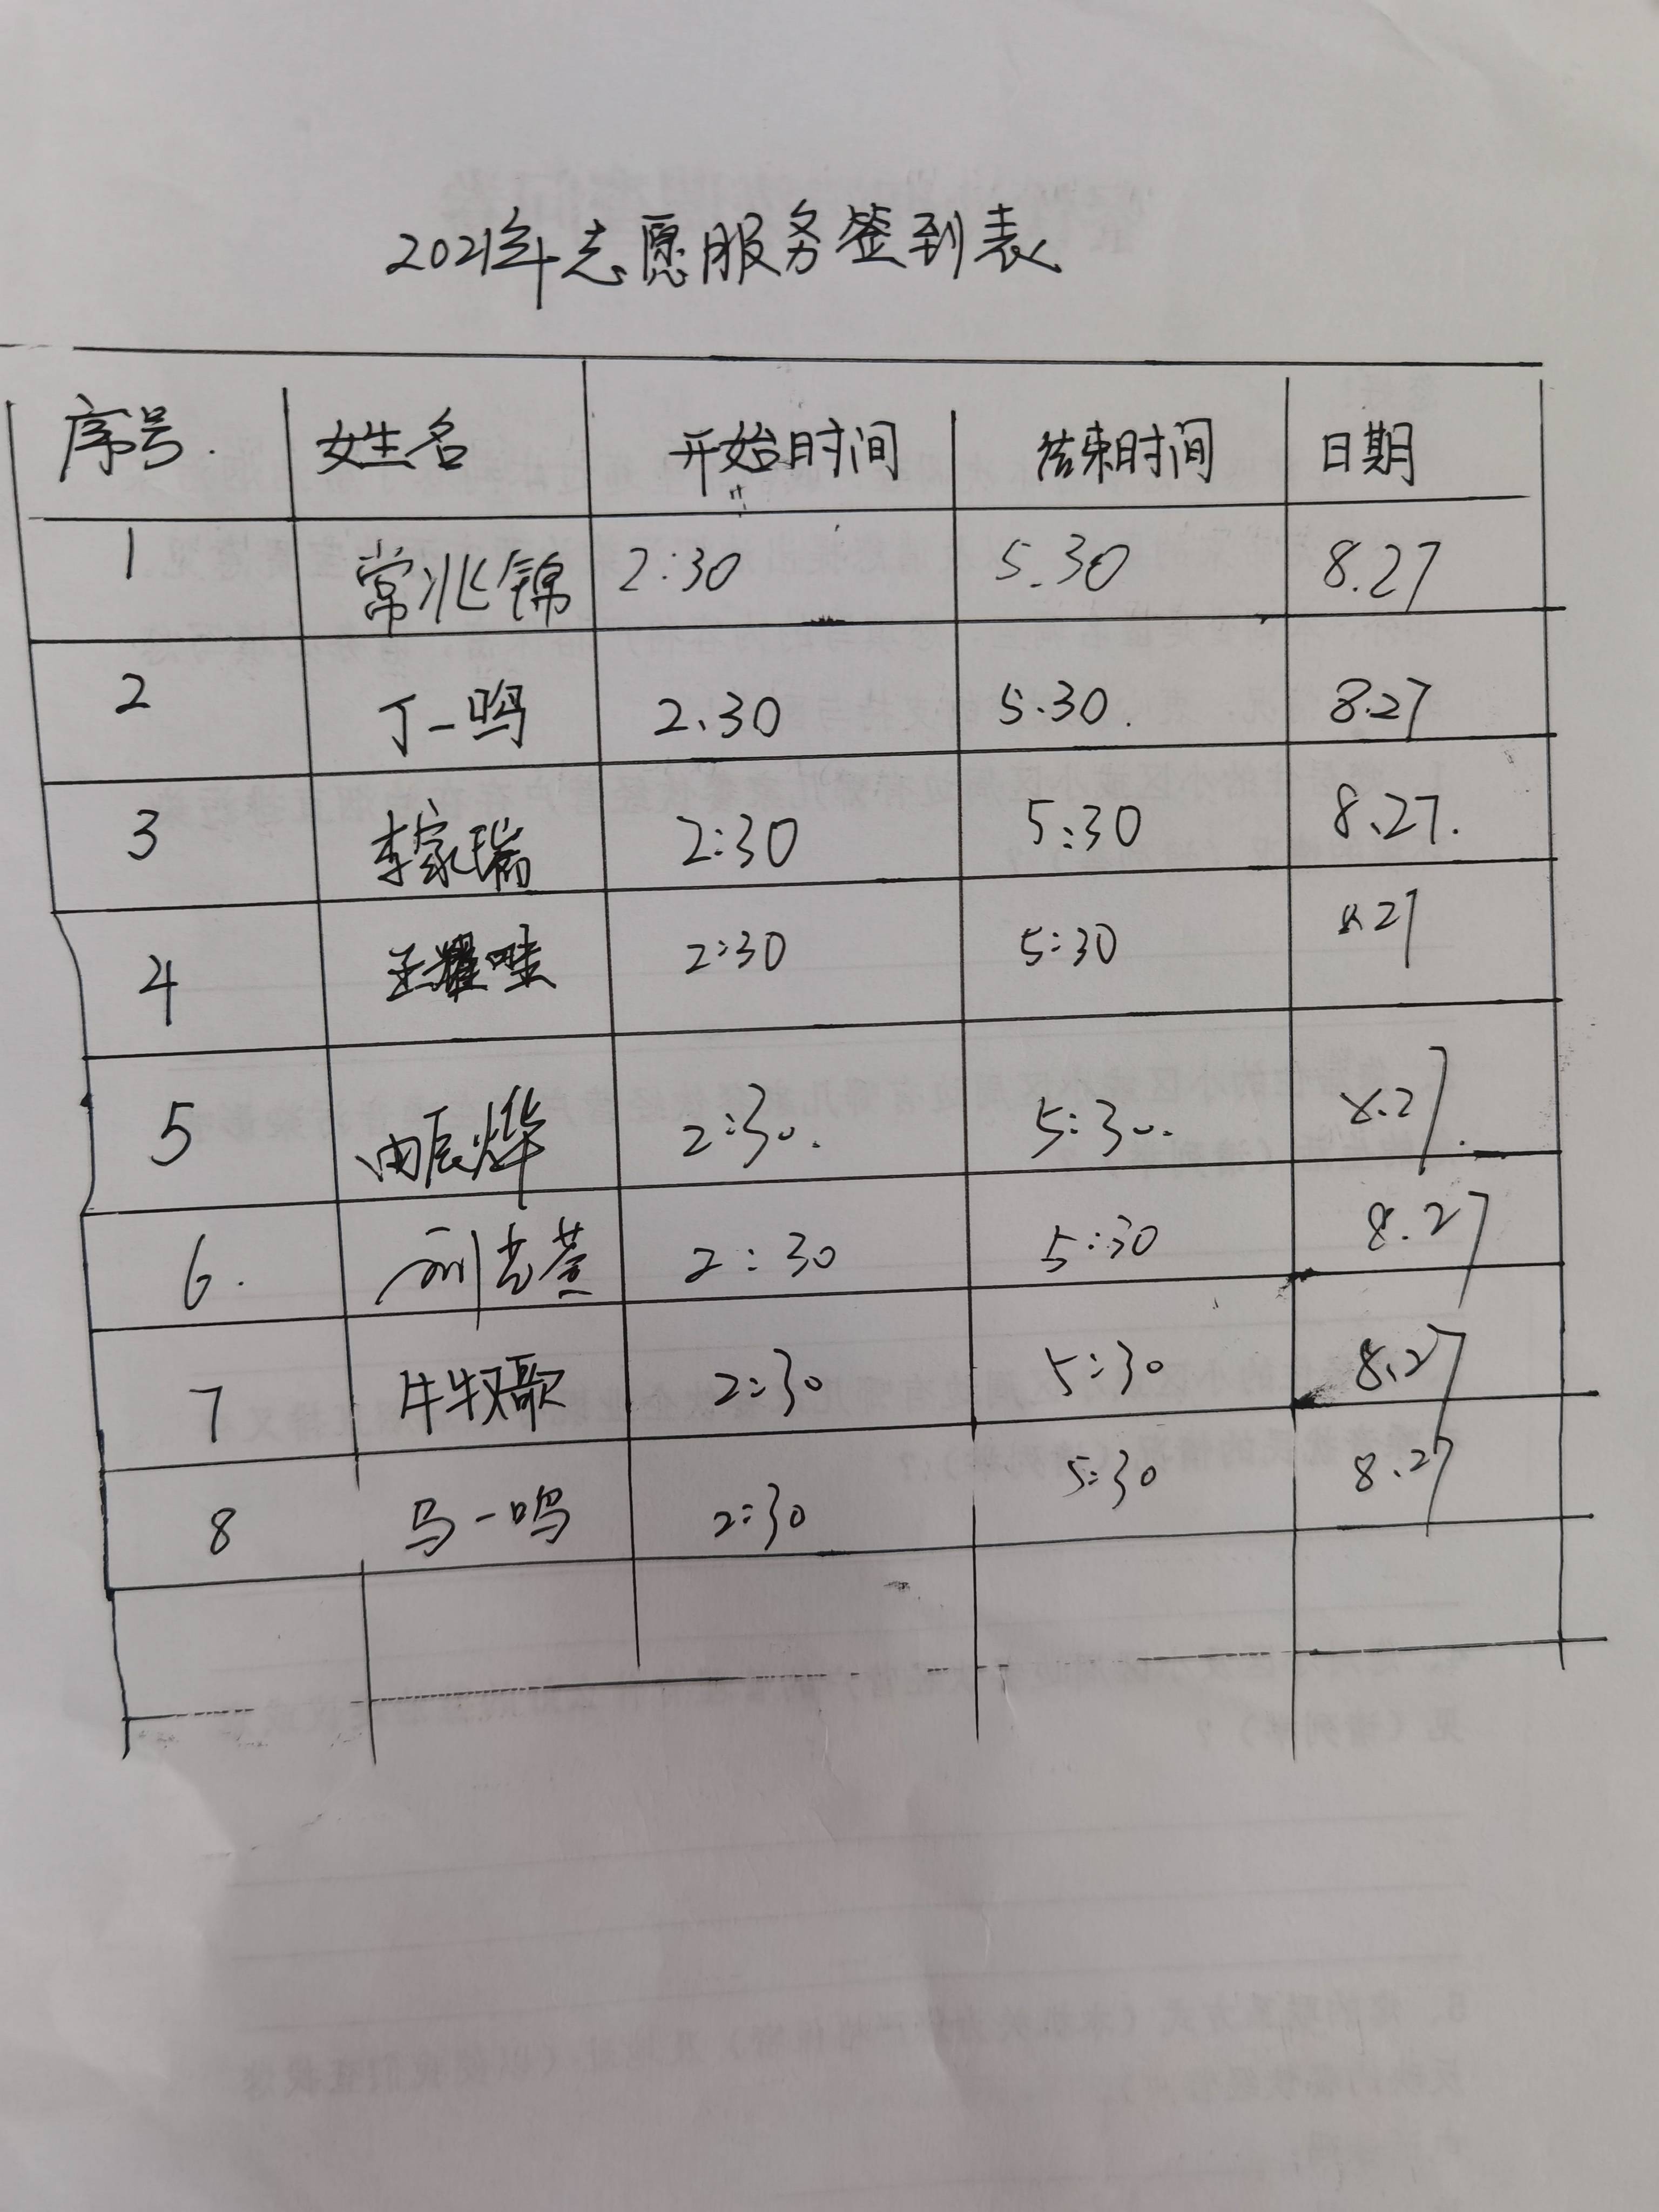 2021年志愿服务签到表
序号. 姓名 开始时间 结束时间 日期
1 常兆锦 2:30 5.30 8.27
2 丁一鸣 2.30 5.30. 8.27
3 李家瑞 2:30 5:30 8.27.
4 王耀 2:30 5:30 8.27
5 辰烨 2:30. 5:30. 8.27.
6. 刘 2:30 5:30 8.27
7 牛牧歌 2:30 5:30 8.27
8 马一鸣 2:30 5:30 8.27